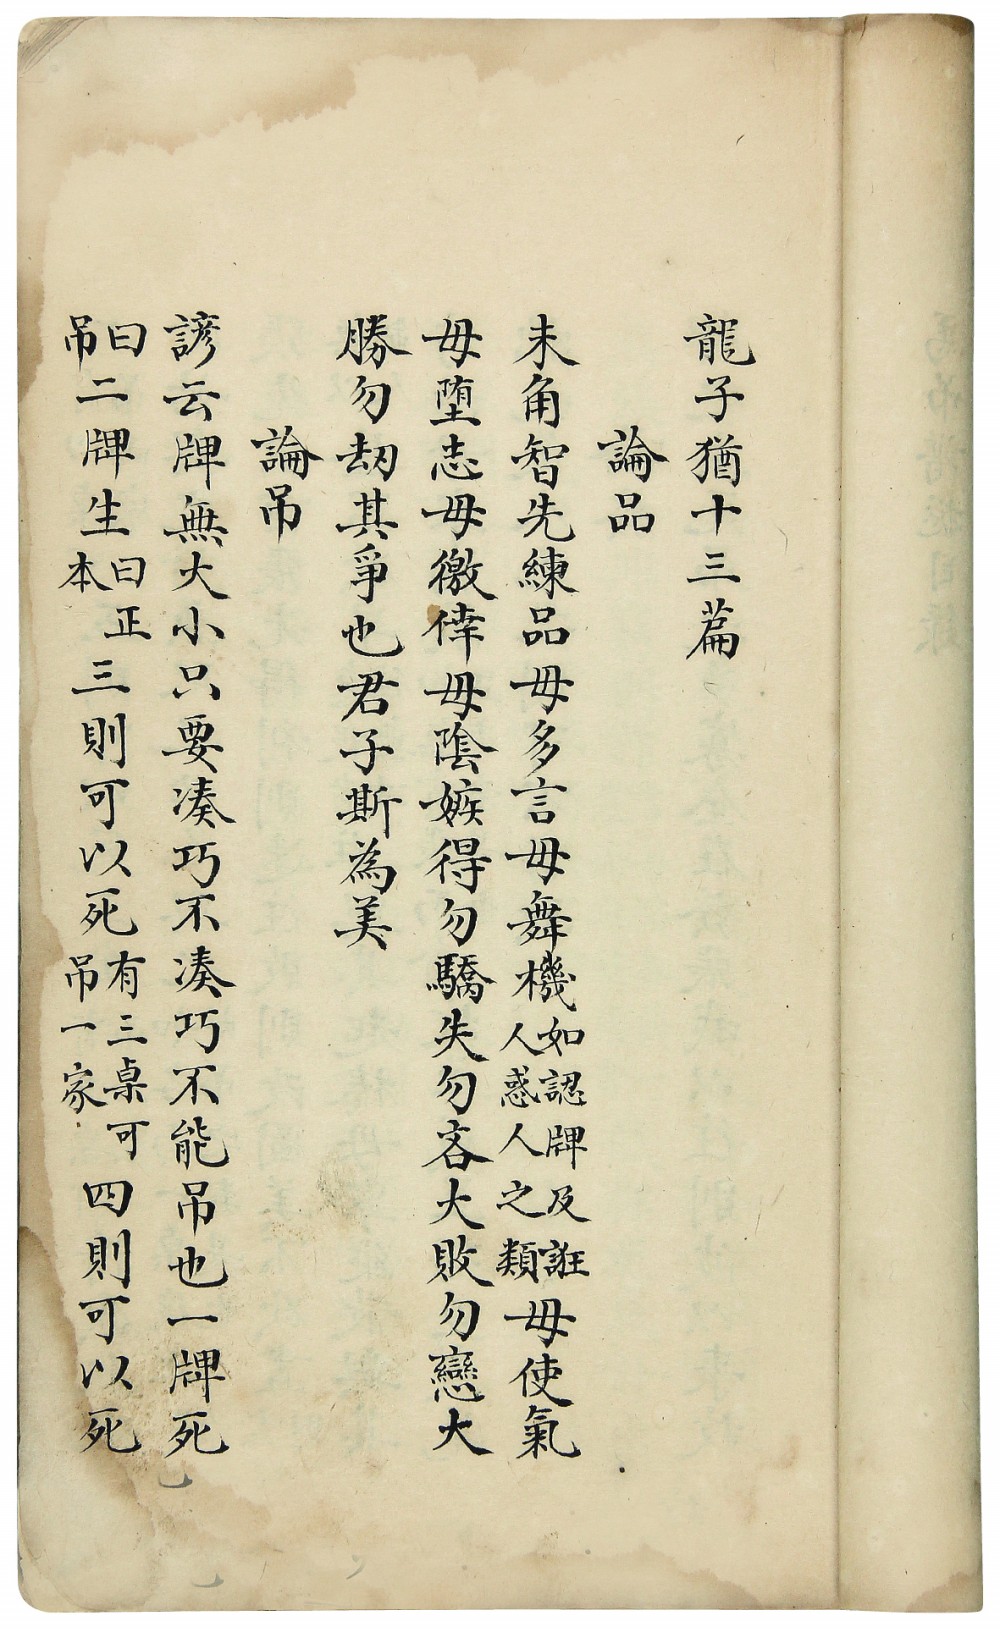 龍子猶十三篇
論品
未角智先練品毋多言毋舞機如認牌及誑人惑人之類毋使氣
毋墮志毋徼倖毋陰嫉得勿驕失勿吝大敗勿戀大
勝勿刧其爭也君子斯為美
論吊
諺云牌無大小只要凑巧不凑巧不能吊也一牌死
曰吊二牌生曰正本三則可以死有三桌可吊一家四則可以死